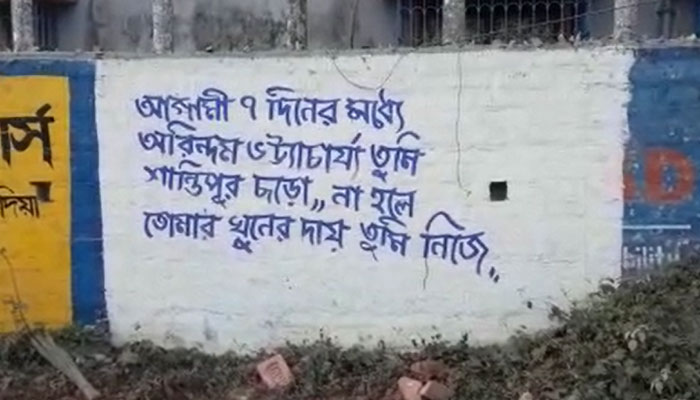 আগামী ৭ দিনের মধ্যে
অরিন্দম ভট্টাচার্য্য তুমি
শান্তিপুর ছাড়ো,, না হলে
তোমার খুনের দায় তুমি নিজে,,
র্স
দিয়া
D